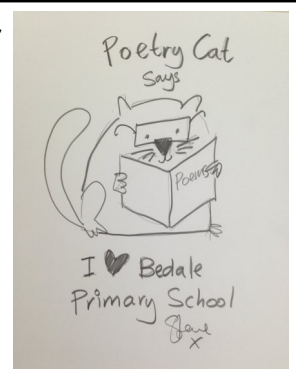 Poetry Cat
Says
Poems
I ♥ Bedale
Primary School
Steve
X